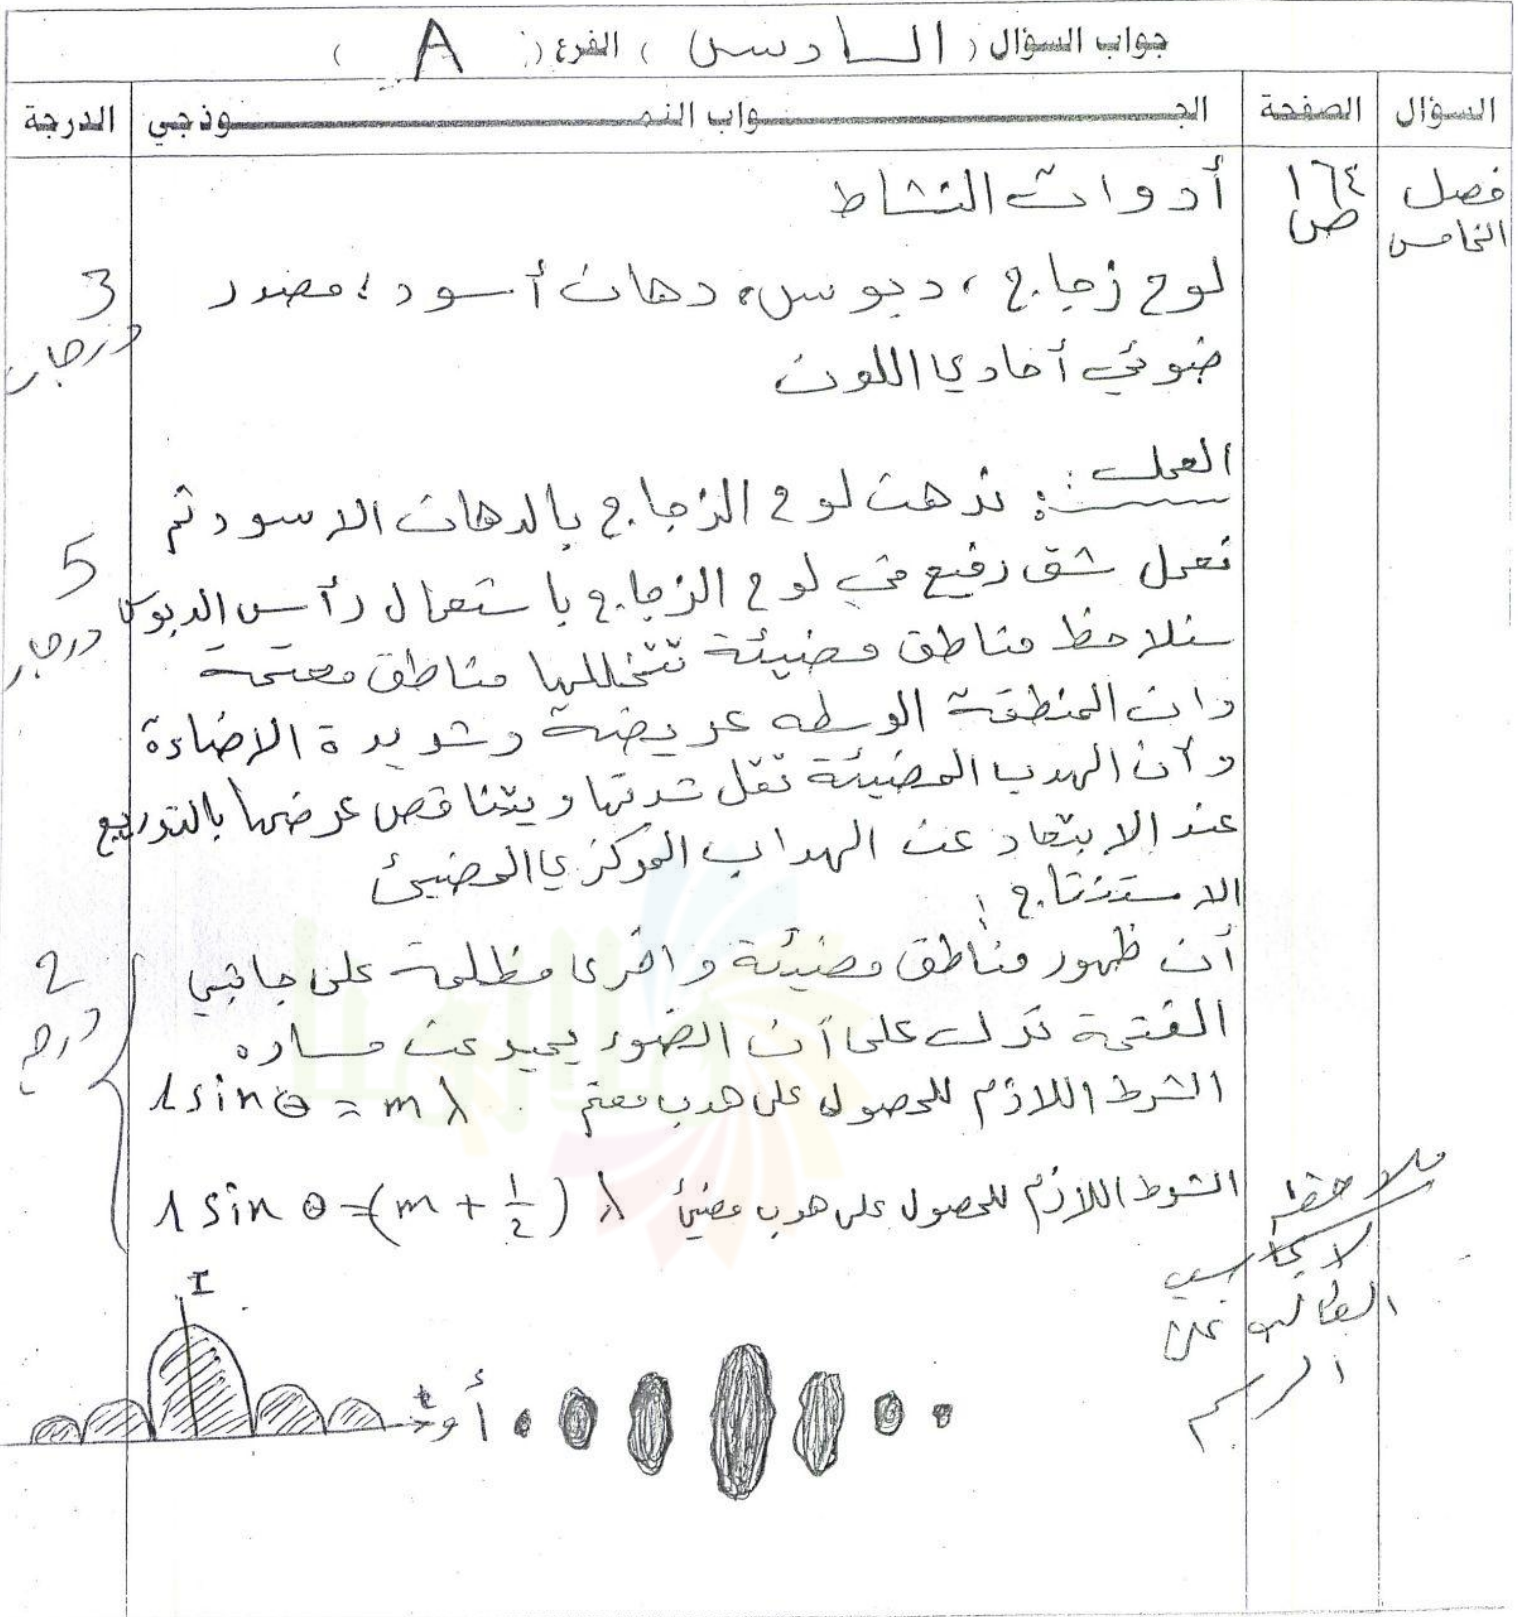 جواب السؤال ( السادس ) الفرع ( A )
السؤال الصفحة الجواب النموذجي الدرجة
فصل الخامس
١٦٤ ص
أدوات النشاط
لوح زجاج ، دبوس، دهان أسود ، مصدر
3 درجات
ضوئي أحادي اللون
العمل :
ندهن لوح الزجاج بالدهان الاسود ثم
نعمل شق رفيع في لوح الزجاج باستعمال رأس الدبوس
5 درجات
سنلاحظ مناطق مضيئة تتخللها مناطق معتمة
وان المنطقة الوسطه عريضة وشديدة الاضاءة
وأن الهدب المضيئة تقل شدتها ويتناقص عرضها بالتدريج
عند الابتعاد عن الهداب المركزي المضيئ
الاستنتاج :
أن ظهور مناطق مضيئة واخرى مظلمة على جانبي
2 درجة
الفتحة تدل على أن الضوء يحيد عن مساره
الشرط اللازم للحصول على هدب معتم l sin θ = m λ
الشرط اللازم للحصول على هدب مضيئ l sin θ = (m + 1/2) λ
ملاحظة
لا يحاسب
الطالب على
الرسم
I
أو